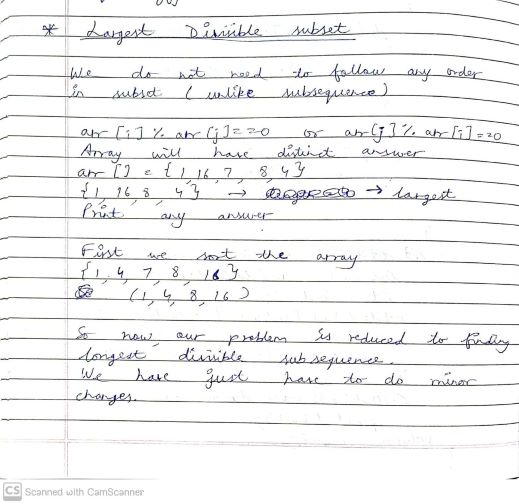 * Largest Divisible subset
We do not need to follow any order
in subset (unlike subsequence)
arr [i] % arr [j] == 0 or arr [j] % arr [i] == 0
Array will have distinct answer
arr [] = {1, 16, 7, 8, 4}
{1, 16, 8, 4} → → largest
Print any answer
First we sort the array
{1, 4, 7, 8, 16}
(1, 4, 8, 16)
So now, our problem is reduced to finding
longest divisible subsequence.
We have just have to do minor
changes.
CS Scanned with CamScanner